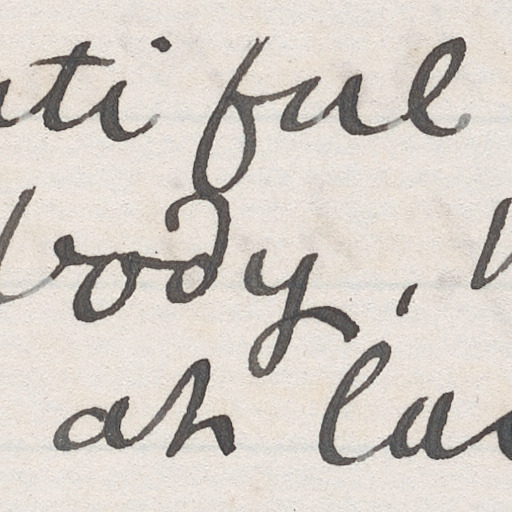 utiful
body,
ah la